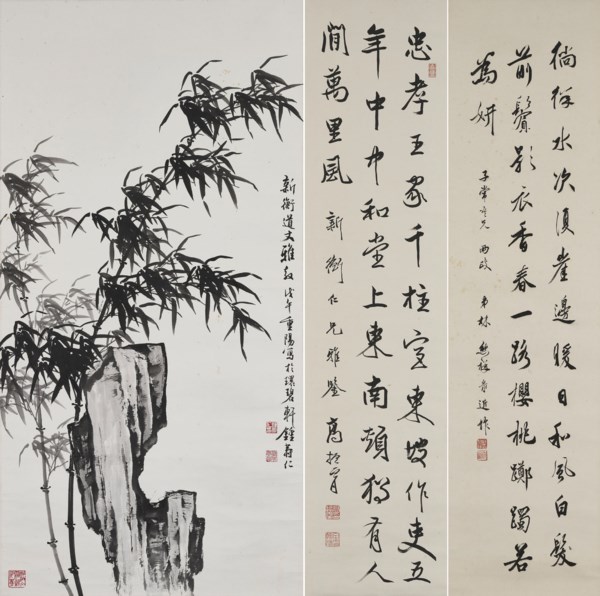 新衡道丈雅教 戊午重陽寫於環碧軒 鍾壽仁
忠孝王家千柱宮東坡作吏五
年中中和堂上東南頰獨有人
間萬里風
新衡仁兄雅鑒 高
徜徉水次復崖邊暖日和風白髮
前鬢影衣香春一路櫻桃躑躅若
為妍
子常吾兄 兩政 弟林熊祥近作